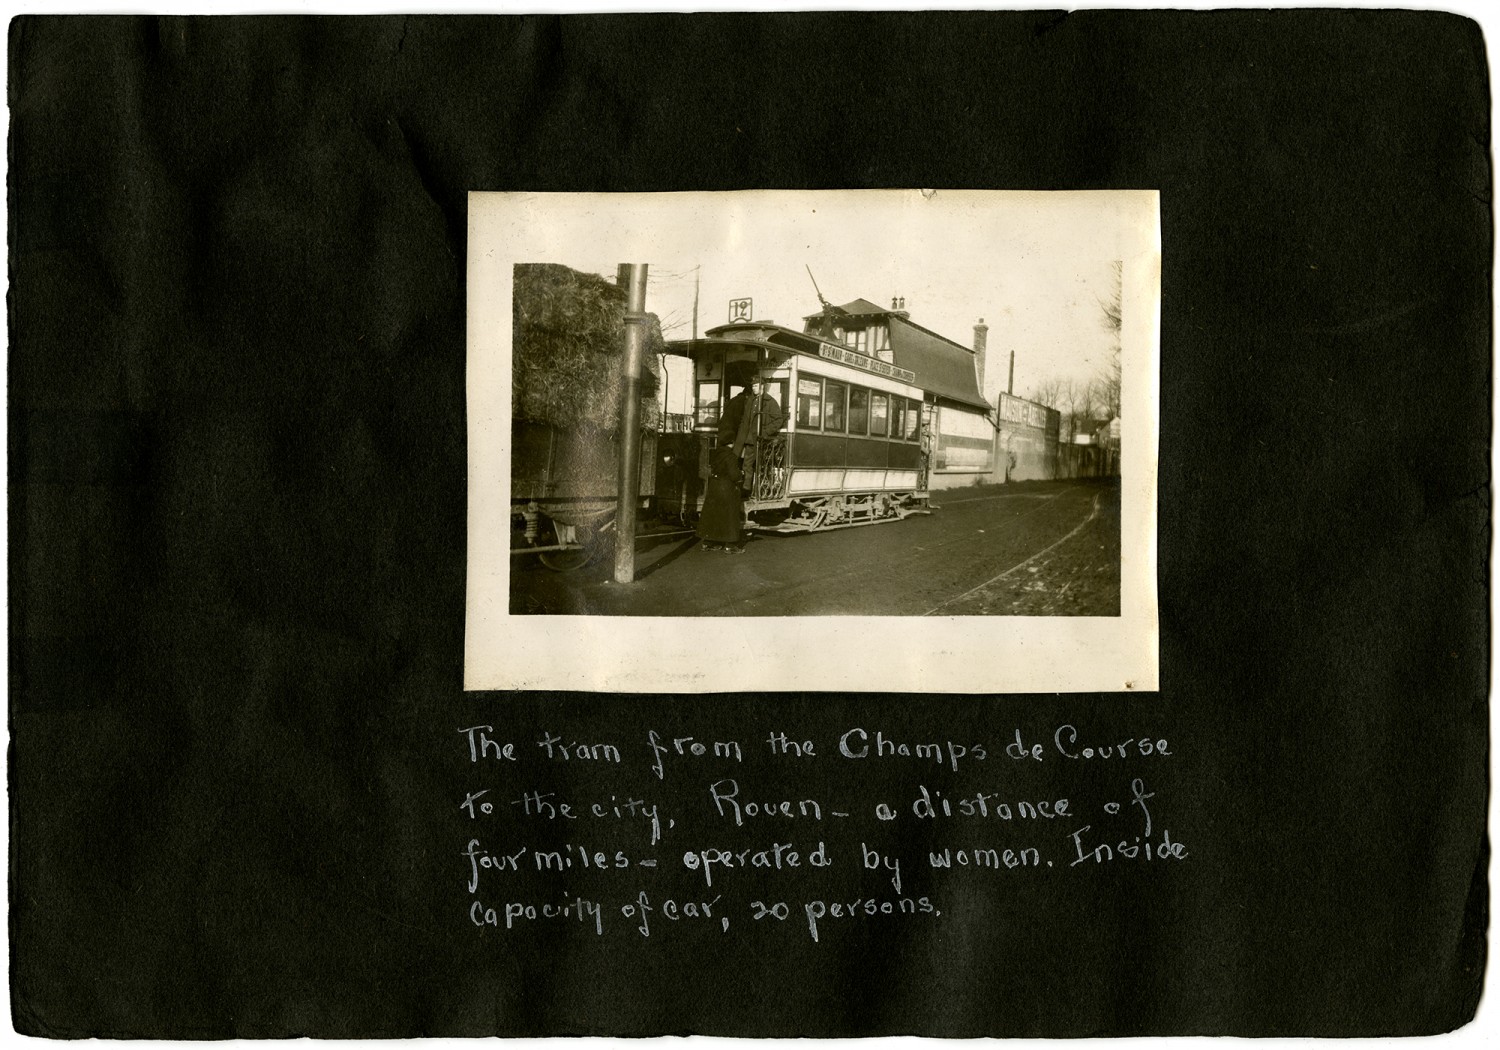 12
The tram from the Champs de Course
to the city, Rouen - a distance of
four miles - operated by women. Inside
capacity of car, 20 persons.